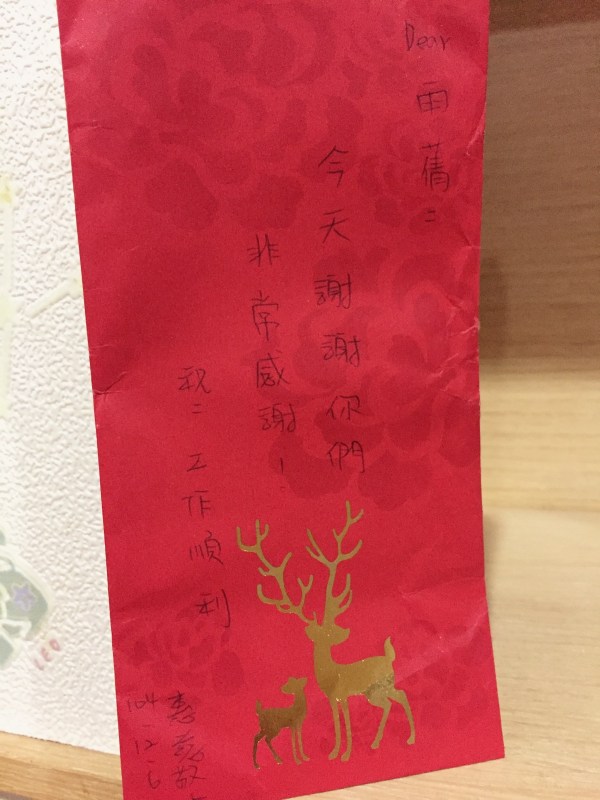 Dear 雨蒨：
今天謝謝你們
非常感謝！
祝：工作順利
104.12.6
LEO